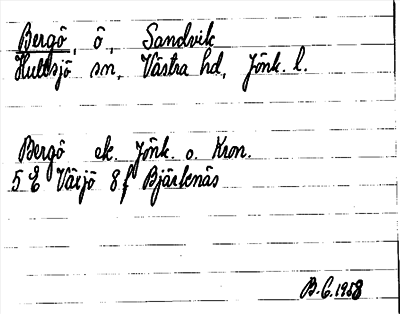 Bergö, ö, Sandvik
Hultsjö sn, Västra hd, Jönk. l.
Bergö ek. Jönk. o. Kron.
5 E Växjö 8 f Bjärkenäs
B.C. 1958